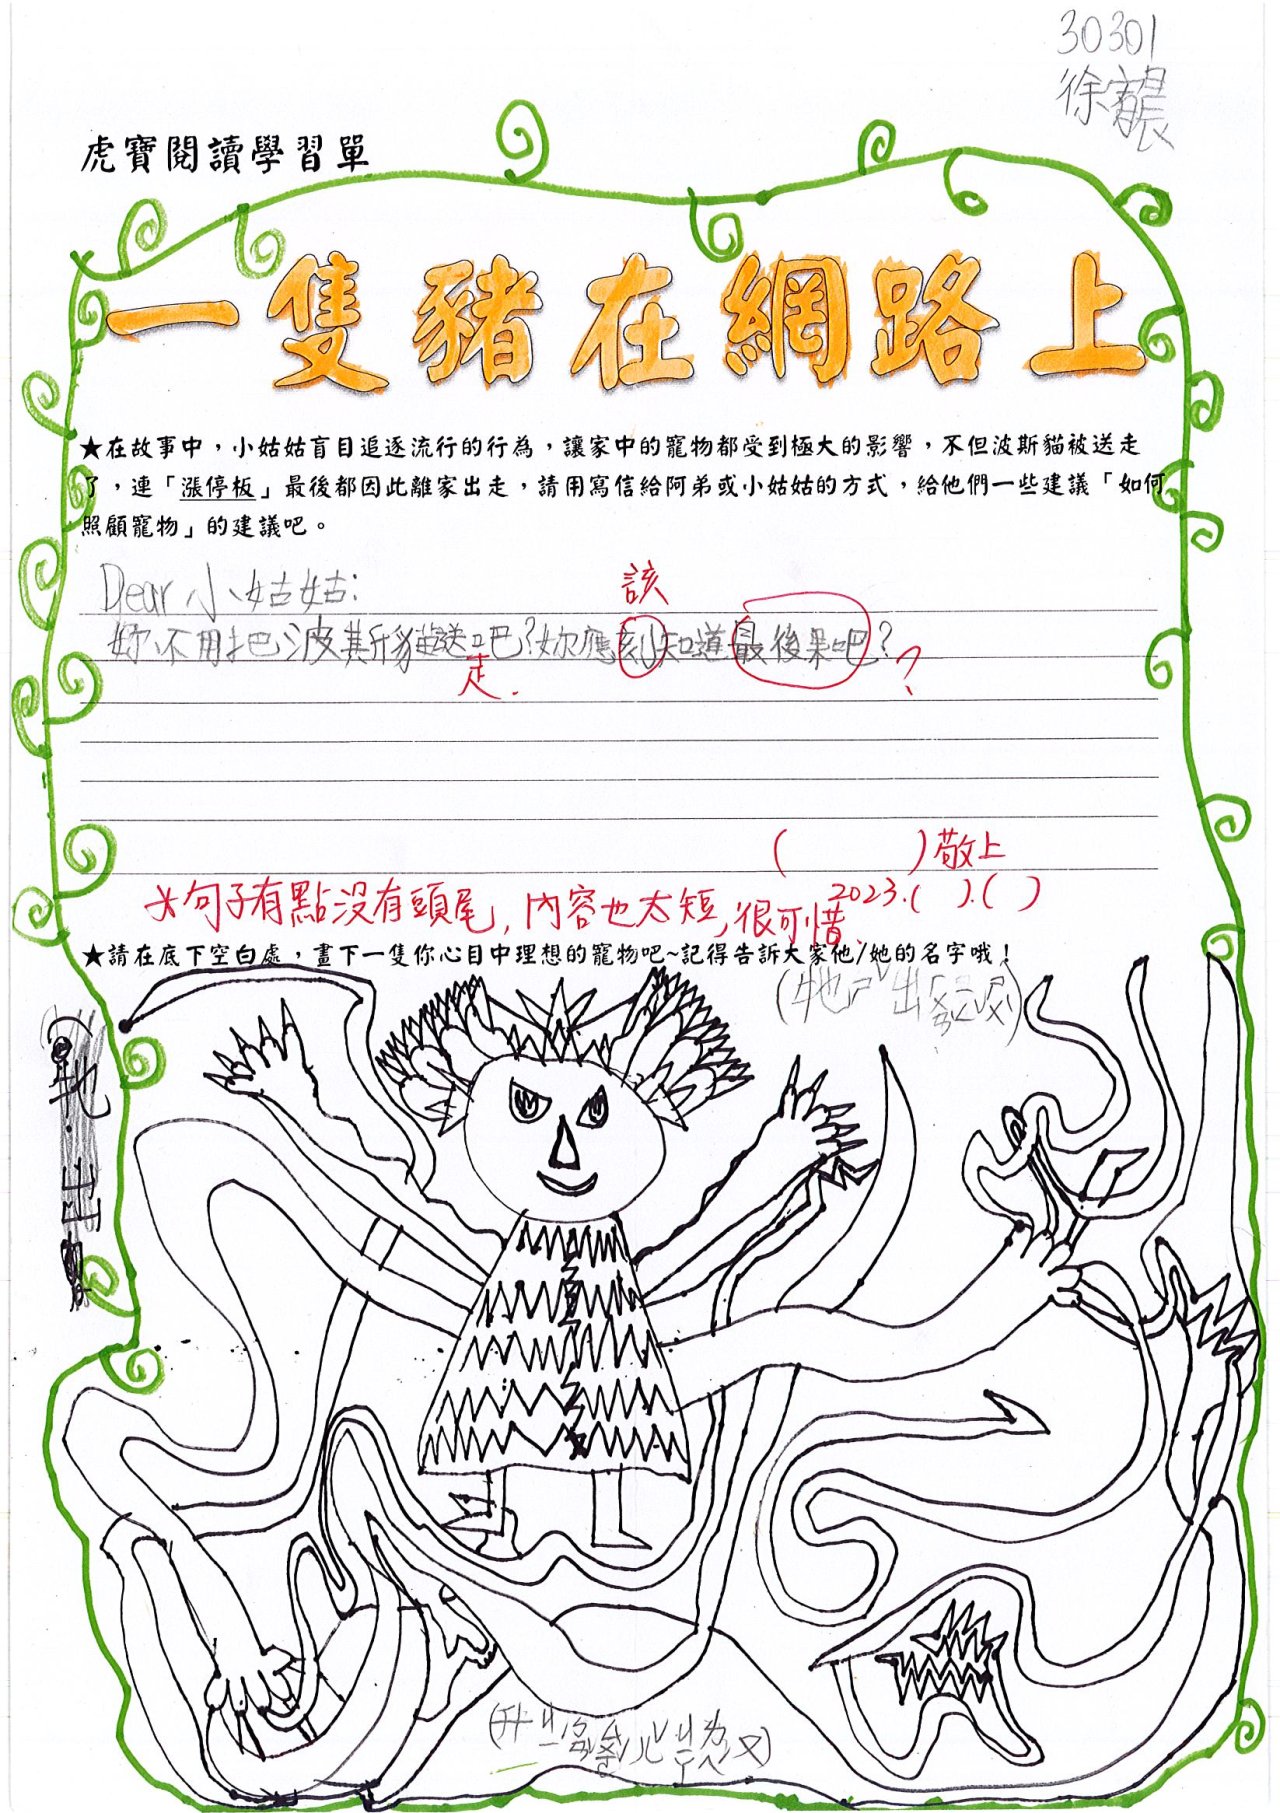 30301
徐
虎寶閱讀學習單
一隻豬在網路上
★在故事中，小姑姑盲目追逐流行的行為，讓家中的寵物都受到極大的影響，不但波斯貓被送走
了，連「漲停板」最後都因此離家出走，請用寫信給阿弟或小姑姑的方式，給他們一些建議「如何
照顧寵物」的建議吧。
Dear 小姑姑:
該
妳不用把波斯貓送吧?妳應刻知道最後果吧?
走.
?
( )敬上
2023.( ).( )
句子有點沒有頭尾，內容也太短，很可惜.
★請在底下空白處，畫下一隻你心目中理想的寵物吧~記得告訴大家他/她的名字哦！